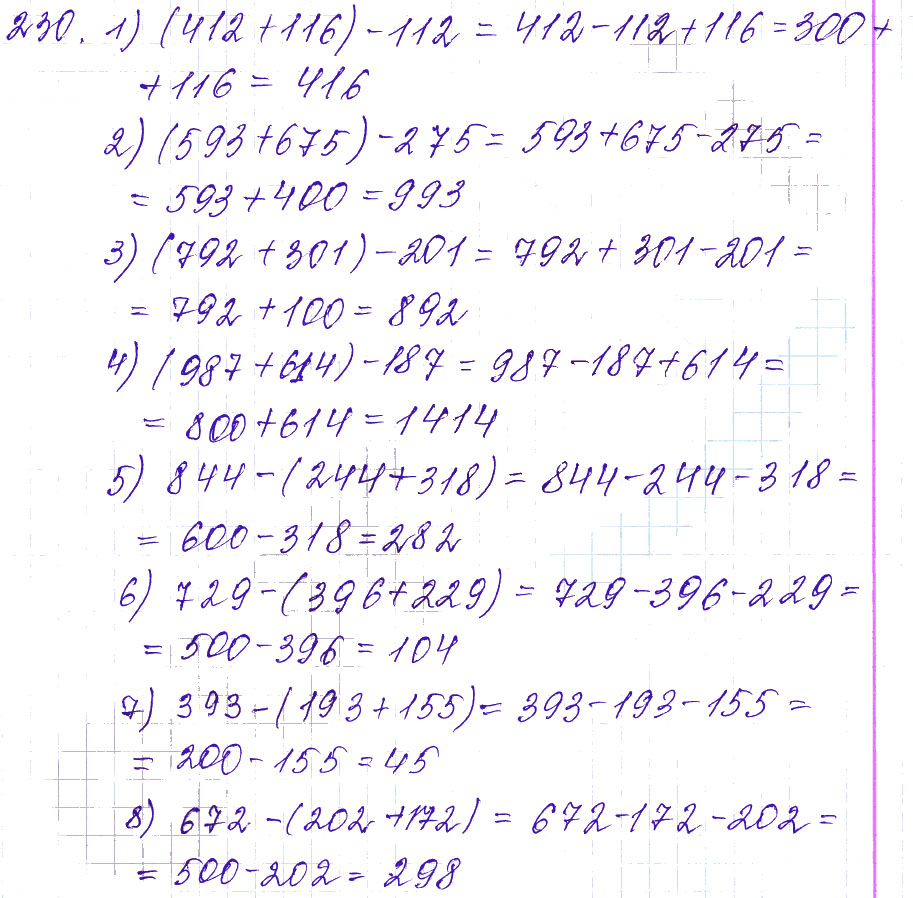 230. 1) (412+116)-112 = 412-112+116=300+
+116= 416
2) (593+675)-275= 593+675-275=
= 593+400=993
3) (792+301)-201= 792+301-201=
= 792+100=892
4) (987+614)-187= 987-187+614=
= 800+614=1414
5) 844-(244+318)=844-244-318=
= 600-318=282
6) 729-(396+229)= 729-396-229=
= 500-396=104
7) 393-(193+155)= 393-193-155=
= 200-155=45
8) 672-(202+172)= 672-172-202=
= 500-202=298